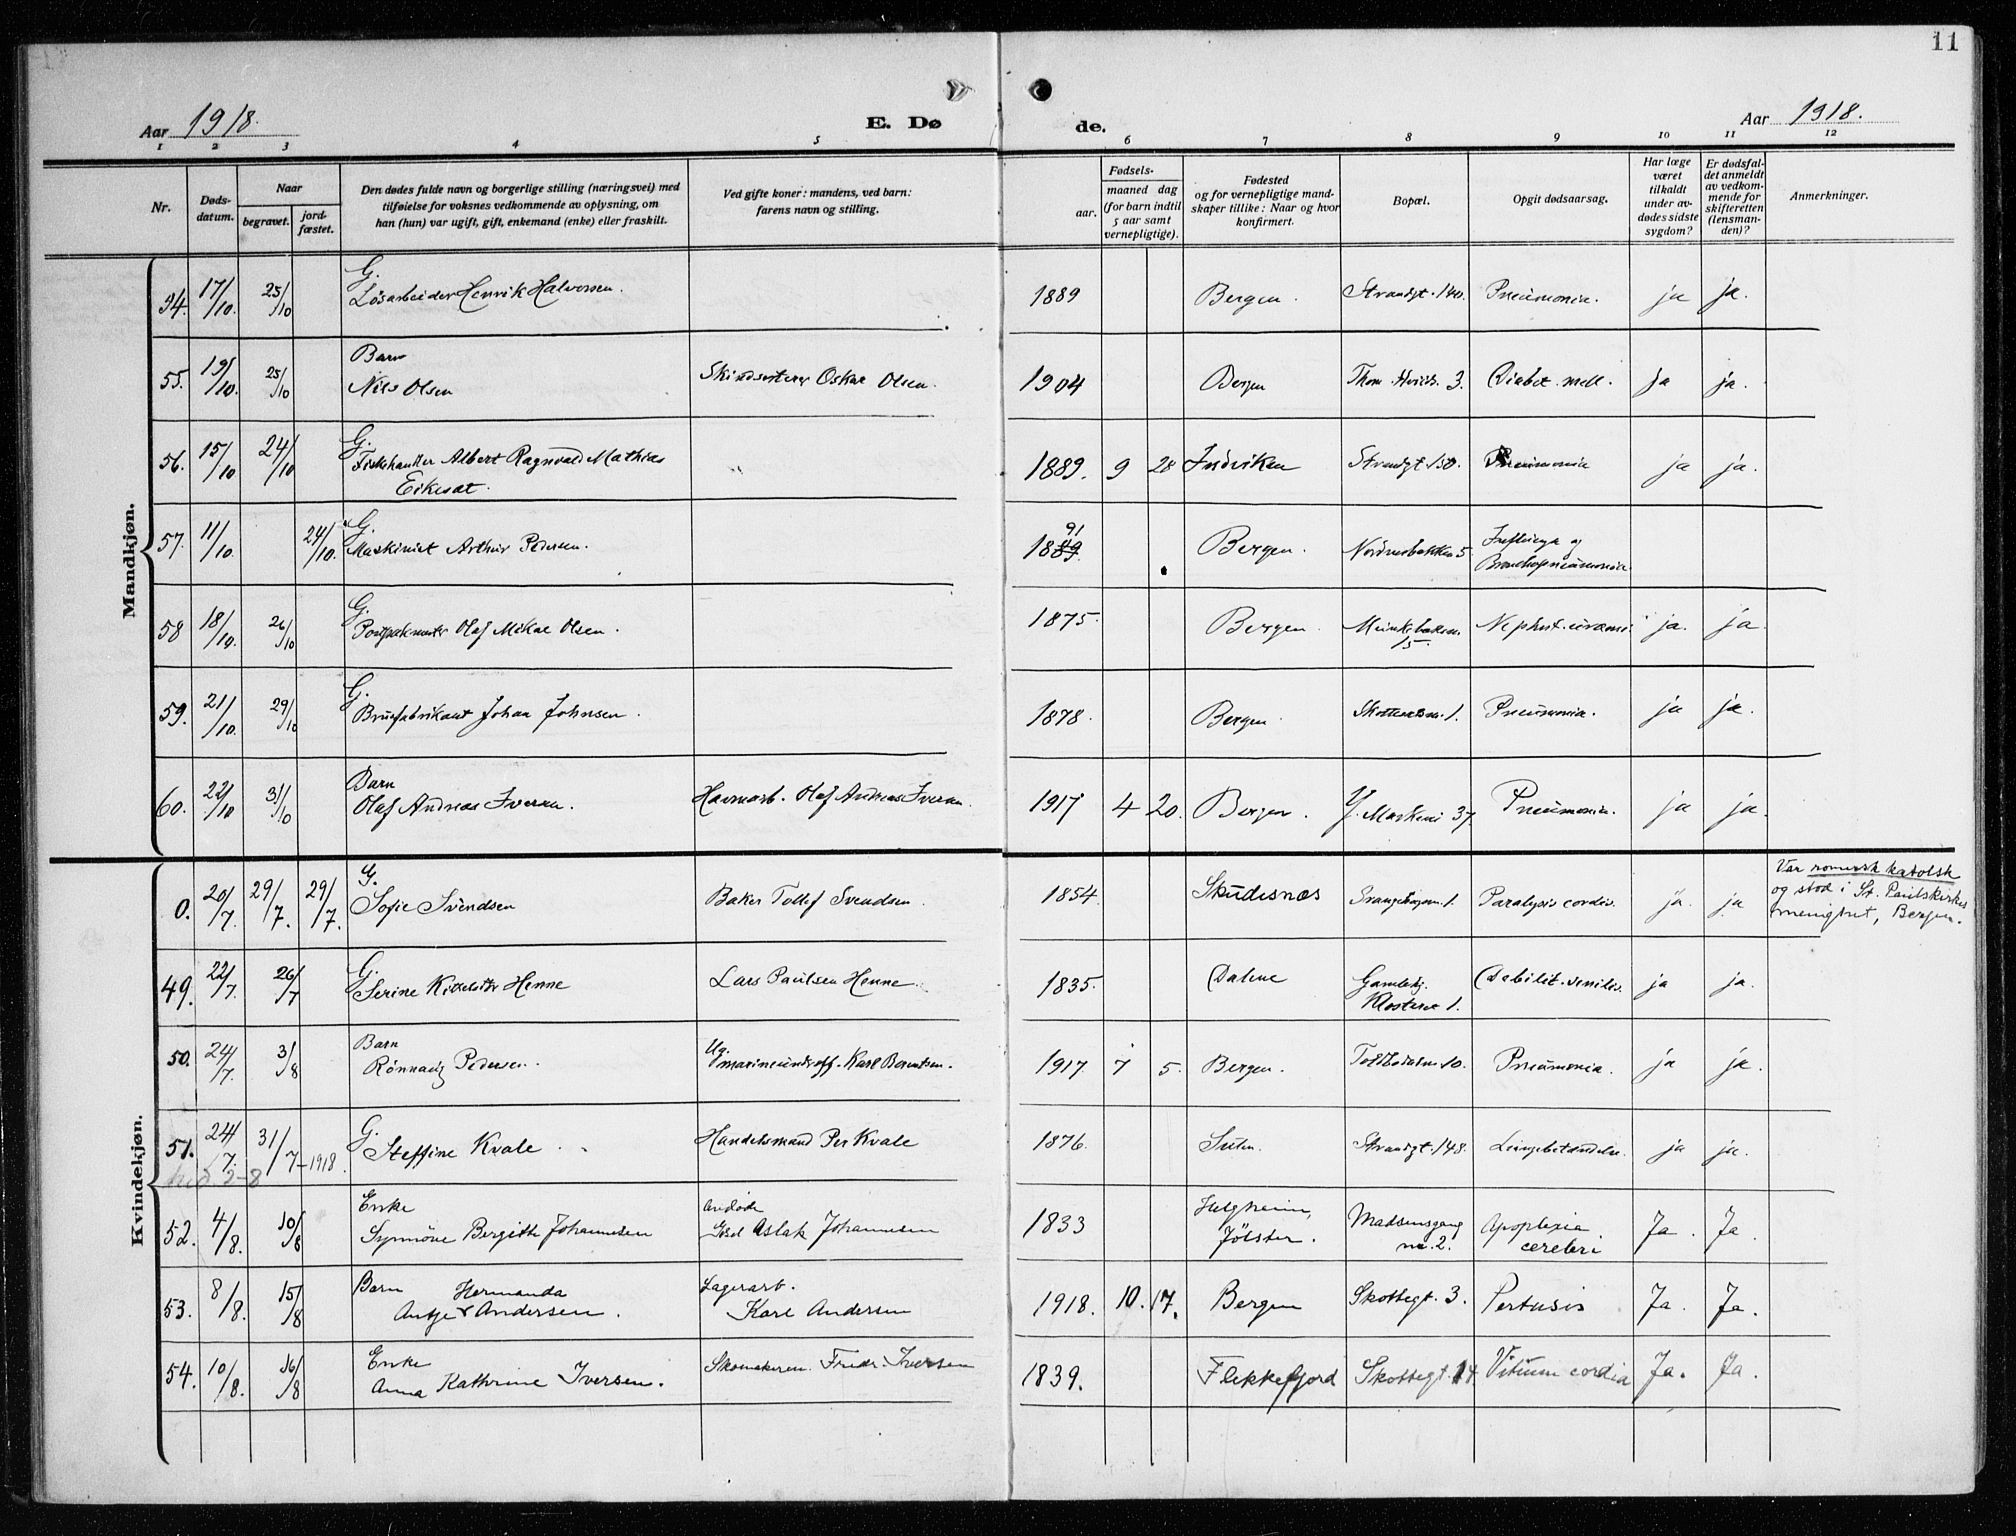 11
Aar 1918. E. Dø de. Aar 1918.
1 2 3 4 5 6 7 8 9 10 11 12
Nr.
Døds-
datum.
Naar
begravet.
jord-
fæstet.
Den dødes fulde navn og borgerlige stilling (næringsvei) med
tilføielse for voksnes vedkommende av oplysning, om
han (hun) var ugift, gift, enkemand (enke) eller fraskilt.
Ved gifte koner: mandens, ved barn:
farens navn og stilling.
Fødsels-
aar.
maaned dag
(for barn indtil
5 aar samt
vernepligtige).
Fødested
og for vernepligtige mand-
skaper tillike: Naar og hvor
konfirmert.
Bopæl.
Opgit dødsaarsag.
Har læge
været
tilkaldt
under av-
dødes sidste
sygdom?
Er dødsfal-
det anmeldt
av vedkom-
mende for
skifteretten
(lensman-
den)?
Anmerkninger.
Mandkjøn.
G.
54. 17/10. 25/10 Løsarbeider Henrik Halvorsen. 1889 Bergen. Strandgt. 140. Pneumonia. ja ja.
Barn
55. 19/10. 25/10 Nils Olsen Skindsorterer Oskar Olsen. 1904 Bergen 3. Diabet. mell. ja ja.
G.
56. 15/10 24/10 Fiskehandler Albert Ragnvald Mathias 1889. 9 28 Indviken Strandgt. 150. Pneumonia ja ja.
G.
57. 11/10 24/10. Maskinist Arthur Pedersen. 1889. 91 Bergen. Nordnesbakken 5. Influenza og
Bronchopneumonia
G.
58 18/10. 26/10 Olaf Mikal Olsen. 1875. Bergen ja. ja
5.
G.
59. 21/10. 29/10 Johan Johnsen 1878. Bergen. 1. Pneumonia. ja ja.
Barn
60. 22/10 31/10 Olaf Andreas Iversen. Havnearb. Olaf Andreas Iversen. 1917 4 20. Bergen. Y. Markevei 37. Pneumonia. ja ja.
Kvindekjøn.
G.
0. 20/7. 29/7. 29/7. Sofie Svendsen Baker Tollef Svendsen. 1854. Skudesnæs 1. Paralysis cordis. ja. ja
Var romersk katolsk
og stod i St. Paulskirkes
menighet, Bergen.
G.
49. 22/7. 26/7 Serine Henne Lars Paulsen Henne. 1835. Dalene Debilit. senilis. ja ja.
Klosteret 1.
Barn
50. 24/7. 3/8 Rønnaug Pedersen. Karl Berntsen. 1917 7 5. Bergen. 10. Pneumonia. ja ja.
G.
51. 24/7. 31/7-1918. Steffine Kvale Handelsmand Per Kvale 1876. Strandgt. 148. Lungebetændelse. ja ja.
Enke
52. 4/8. 10/8 Synnöve Bergitte Johannesen Aslak Johannesen 1833 Helgheim,
Jölster. Madsensgang
nr. 2. Apoplexia
cerebri Ja. Ja.
Barn Hermanda
53. 8/8. 15/8 Antje Andersen. Lagerarb.
Karl Andersen 1918. 10. 17. Bergen Skottegt. 3. Pertusis Ja. Ja.
Enke
54. 10/8. 16/8 Anna Kathrine Iversen. Skomakeren Fredr. Iversen 1839. Flekkefjord Skottegt. 14. Vitium cordia Ja. Ja.